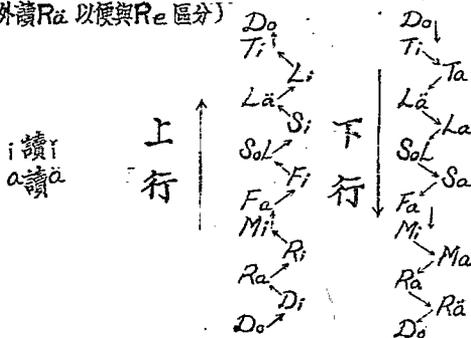 外讀Rä 以便與Re 區分)
i 讀ĭ
a讀ä
上行
Do
Ti
Li
Lä
Si
SoL
Fi
Fa
Mi
Ri
Ra
Di
Do
下行
Do
Ti
Ta
Lä
La
SoL
Sa
Fa
Mi
Ma
Ra
Rä
Do